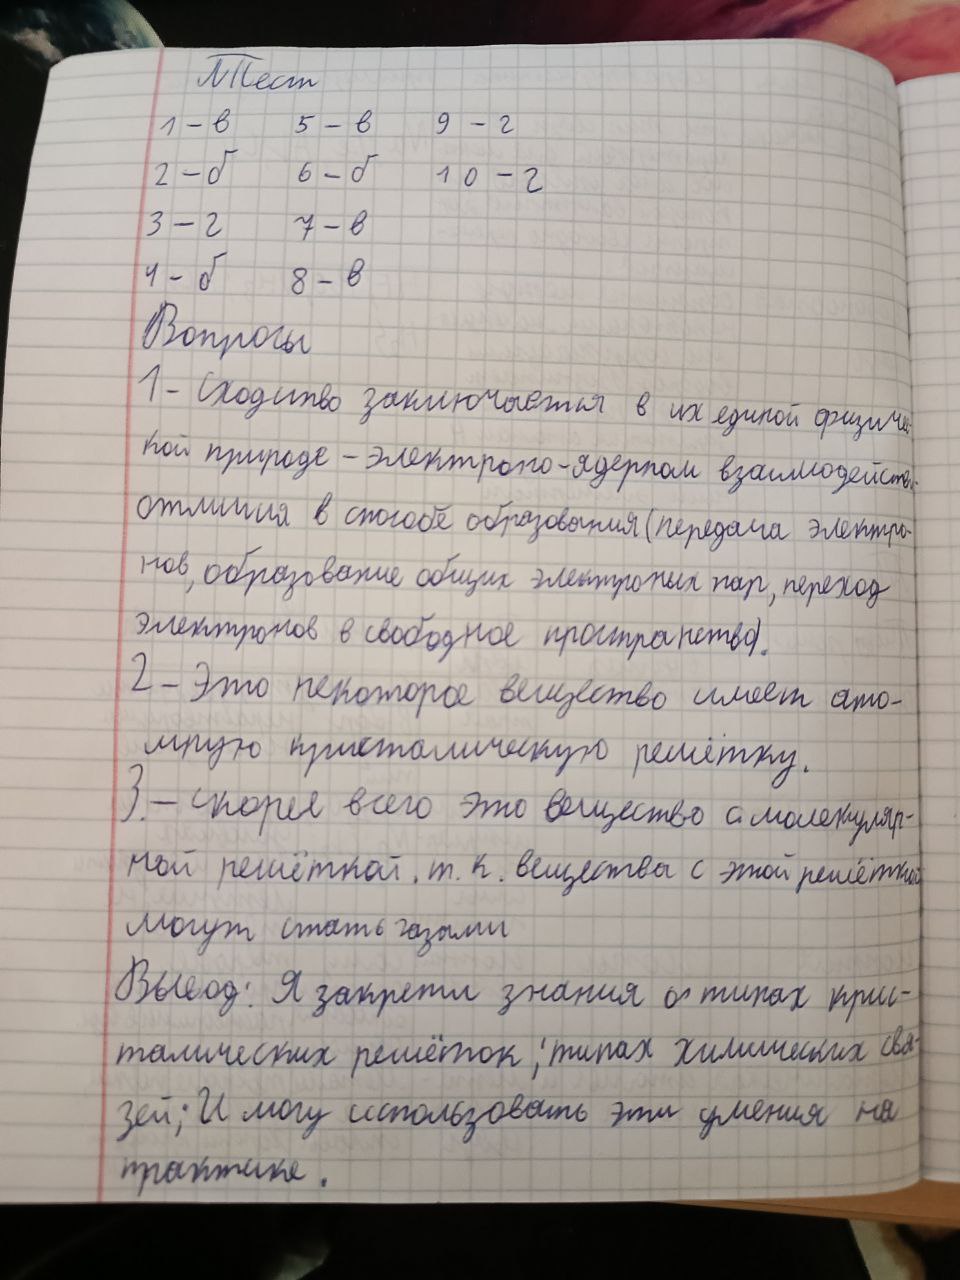 Тест
1 - в 5 - в 9 - г
2 - б 6 - б 10 - г
3 - г 7 - в
4 - б 8 - в
Вопросы
1 - Сходство заключается в их единой физичес-
кой природе - электроно-ядерном взаимодейств.
отличия в способе образования (передача электро-
нов, образование общих электроных пар, переход
электронов в свободное пространство).
2 - Это некоторое вещество имеет ато-
мную кристалическую решётку.
3. - скорее всего это вещество с молекуляр-
ной решёткой. т. к. вещества с этой решёткой
могут стать газами
Вывод: Я закрепил знания о типах крис-
талических решёток; типах химических свя-
зей; И могу использовать эти умения на
практике.